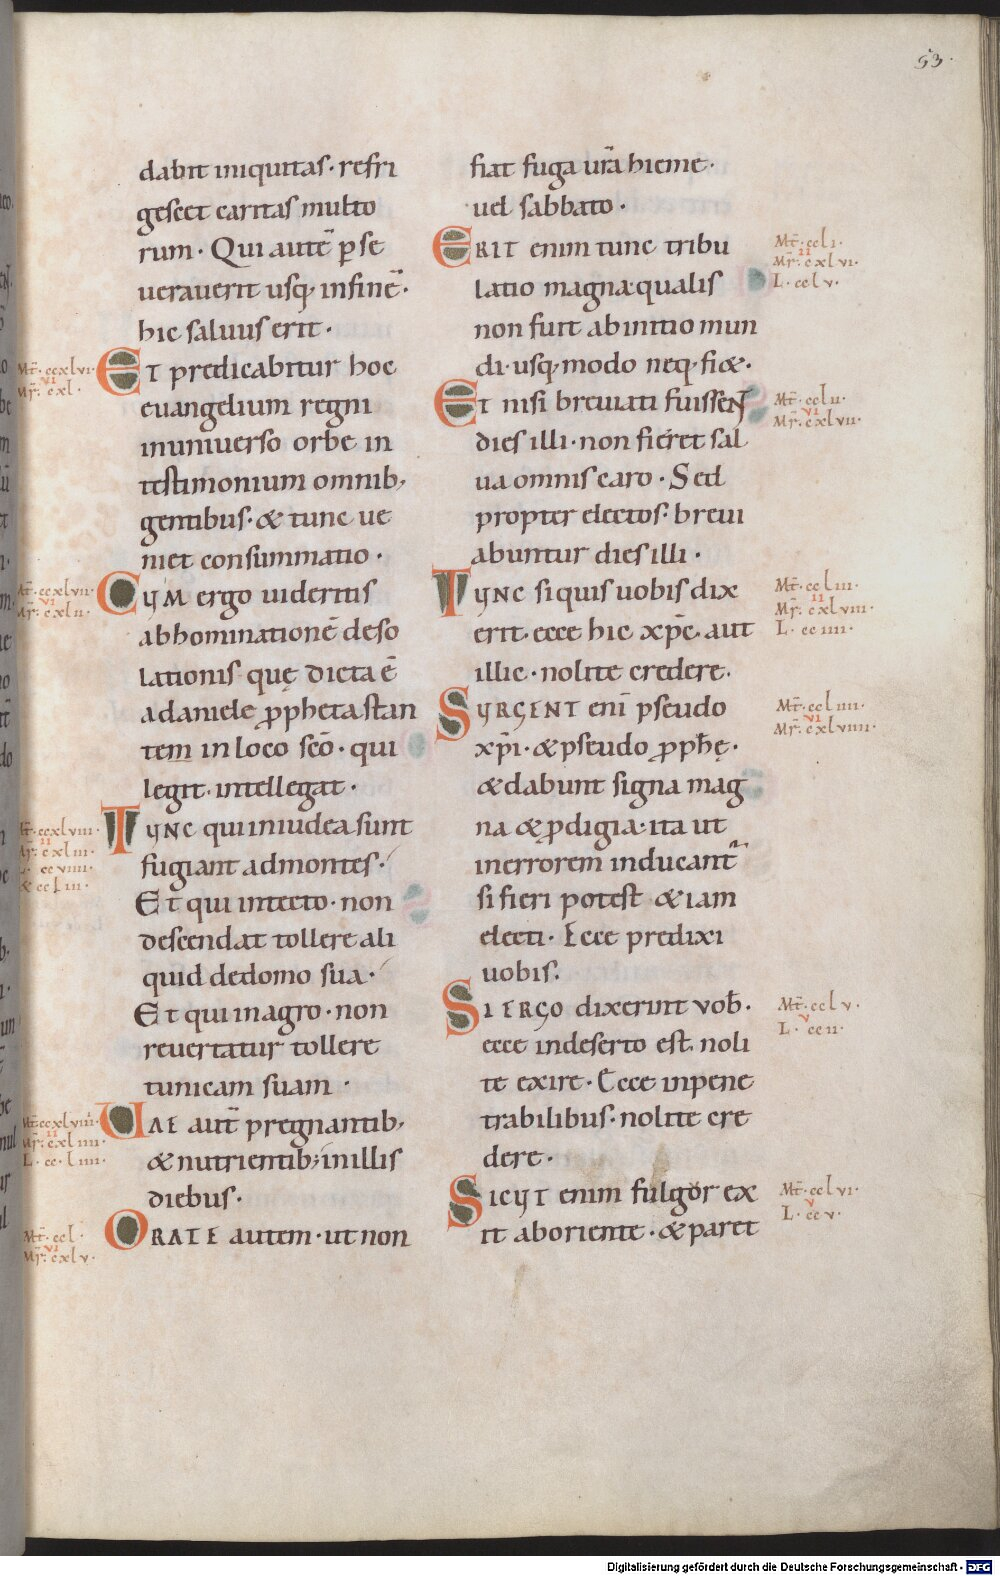 53.
dabit iniquitas· refri
gescet caritas multo
rum· Qui autē ꝑse
uerauerit usq; infinē·
hic saluus erit·
Mt̄·ccxlvi·
VI
Mr̄·cxl·
Et predicabitur hoc
euangelium regni
inuniuerso orbe in
testimonium omnib;
gentibus· & tunc ue
niet consummatio·
Mt̄·ccxlvii·
VI
Mr̄·cxlii·
CUM ergo uideritis
abhominationē deso
lationis quę dicta ē
adaniele ꝓpheta stan
tem in loco scō· qui
legit· intellegat·
Mt̄·ccxlviii·
II
Mr̄·cxliii·
L·ccviiii·
&ccliii·
TUNC qui iniudea sunt
fugiant admontes·
Et qui intecto· non
descendat tollere ali
quid dedomo sua·
Et qui inagro· non
reuertatur tollere
tunicam suam·
Mt̄·ccxlviiii·
II
Mr̄·cxliiii·
L·cc·liiii·
UAE aut̄ pregnantib;
& nutrientib; inillis
diebus·
Mt̄·ccl·
VI
Mr̄·cxlv·
ORATE autem· ut non
fiat fuga ur̄a hieme·
uel sabbato·
ERIT enim tunc tribu
latio magna· qualis
non fuit abinitio mun
di· usq; modo neq; fi&·
Mt̄·ccli·
II
Mr̄·cxlvi·
L·cclv·
Et nisi breuiati fuissent
dies illi· non fieret sal
ua omnis caro· Sed
propter electos· breui
abuntur dies illi·
Mt̄·cclii·
VI
Mr̄·cxlvii·
TUNC siquis uobis dix
erit· ecce hic xp̄c· aut
illic· nolite credere·
Mt̄·ccliii·
II
Mr̄·cxlviii·
L·cciiii·
SURGENT enī pseudo
xp̄i· & pseudo ꝓph̄ę·
& dabunt signa mag
na & ꝓdigia· ita ut
inerrorem inducant᷑
si fieri potest &iam
electi· Ecce predixi
uobis·
Mt̄·ccliiii·
VI
Mr̄·cxlviiii·
SI ERGO dixerint vob̄·
ecce indeserto est· noli
te exire· Ecce inpene
trabilibus· nolite cre
dere·
Mt̄·cclv·
V
L·ccii·
SICUT enim fulgor ex
it aboriente· & paret
Mt̄·cclvi·
V
L·ccv·
Digitalisierung gefördert durch die Deutsche Forschungsgemeinschaft - DFG